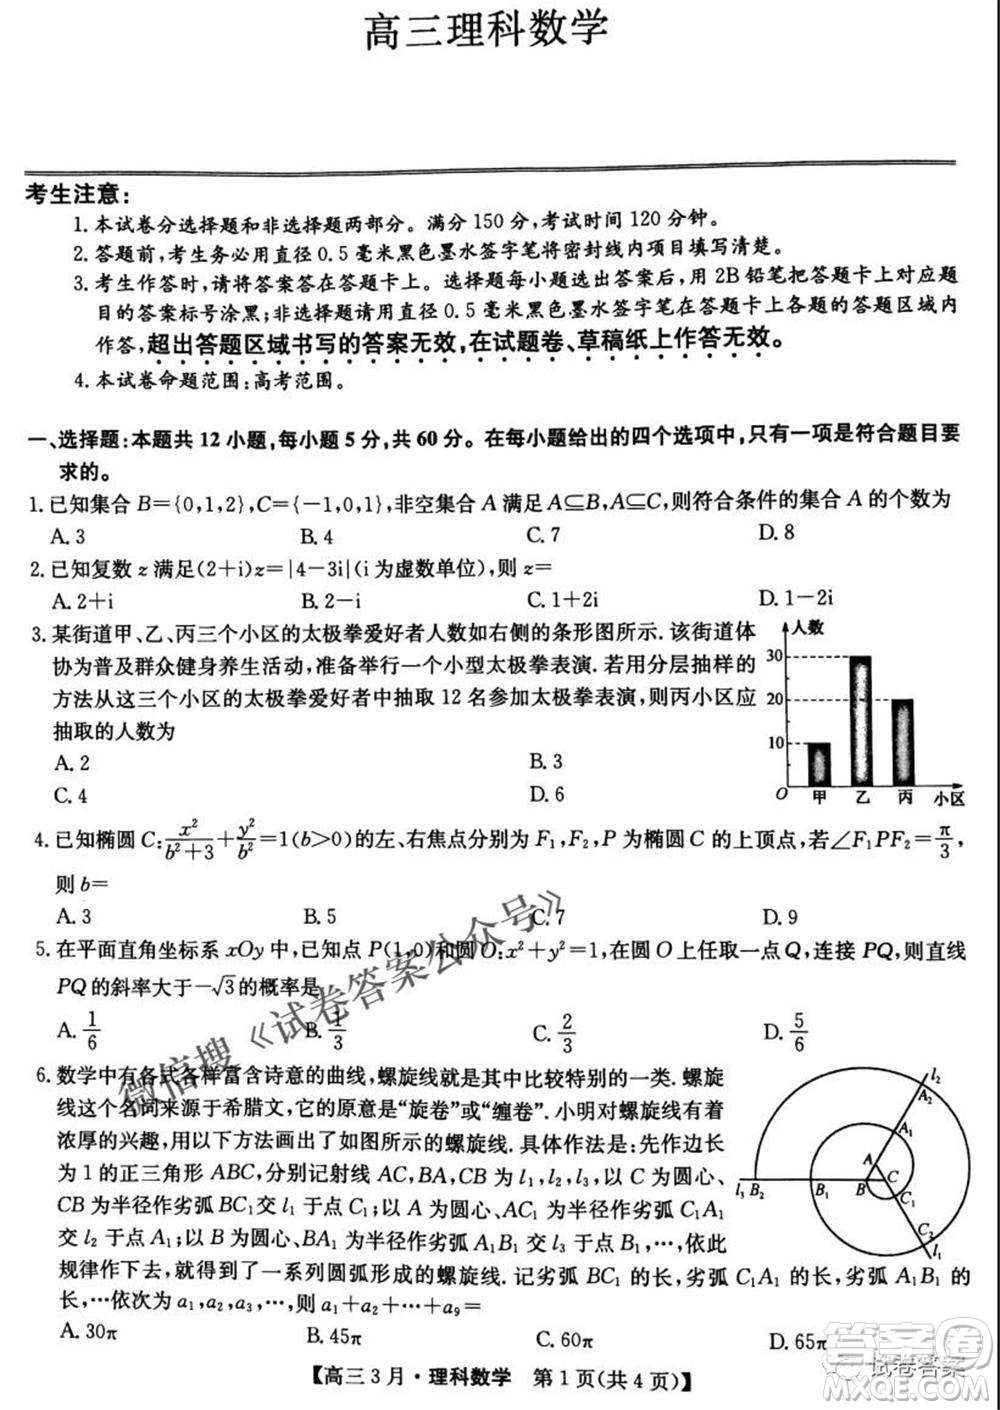 高三理科数学
考生注意:
1. 本试卷分选择题和非选择题两部分。满分 150 分,考试时间 120 分钟。
2. 答题前,考生务必用直径 0.5 毫米黑色墨水签字笔将密封线内项目填写清楚。
3. 考生作答时,请将答案答在答题卡上。选择题每小题选出答案后,用 2B 铅笔把答题卡上对应题
目的答案标号涂黑;非选择题请用直径 0.5 毫米黑色墨水签字笔在答题卡上各题的答题区域内
作答,超出答题区域书写的答案无效,在试题卷、草稿纸上作答无效。
4. 本试卷命题范围:高考范围。
一、选择题:本题共 12 小题,每小题 5 分,共 60 分。在每小题给出的四个选项中,只有一项是符合题目要
求的。
1. 已知集合 B={0,1,2},C={-1,0,1},非空集合 A 满足 A⊆B,A⊆C,则符合条件的集合 A 的个数为
A. 3 B. 4 C. 7 D. 8
2. 已知复数 z 满足(2+i)z=|4-3i|(i 为虚数单位),则 z=
A. 2+i B. 2-i C. 1+2i D. 1-2i
3. 某街道甲、乙、丙三个小区的太极拳爱好者人数如右侧的条形图所示. 该街道体
协为普及群众健身养生活动,准备举行一个小型太极拳表演. 若用分层抽样的
方法从这三个小区的太极拳爱好者中抽取 12 名参加太极拳表演,则丙小区应
抽取的人数为
A. 2 B. 3
C. 4 D. 6
人数
30
20
10
O 甲 乙 丙 小区
4. 已知椭圆 C: x²/(b²+3) + y²/b² =1(b>0)的左、右焦点分别为 F₁,F₂,P 为椭圆 C 的上顶点,若∠F₁PF₂= π/3,
则 b=
A. 3 B. 5 C. 7 D. 9
5. 在平面直角坐标系 xOy 中,已知点 P(1,0)和圆 O:x²+y²=1,在圆 O 上任取一点 Q,连接 PQ,则直线
PQ 的斜率大于-√3的概率是
A. 1/6 B. 1/3 C. 2/3 D. 5/6
6. 数学中有各式各样富含诗意的曲线,螺旋线就是其中比较特别的一类. 螺旋
线这个名词来源于希腊文,它的原意是“旋卷”或“缠卷”. 小明对螺旋线有着
浓厚的兴趣,用以下方法画出了如图所示的螺旋线. 具体作法是:先作边长
为 1 的正三角形 ABC,分别记射线 AC,BA,CB 为 l₁,l₂,l₃,以 C 为圆心、
CB 为半径作劣弧 BC₁ 交 l₁ 于点 C₁;以 A 为圆心、AC₁ 为半径作劣弧 C₁A₁
交 l₂ 于点 A₁;以 B 为圆心、BA₁ 为半径作劣弧 A₁B₁ 交 l₃ 于点 B₁,…,依此
规律作下去,就得到了一系列圆弧形成的螺旋线. 记劣弧 BC₁ 的长,劣弧 C₁A₁ 的长,劣弧 A₁B₁ 的
长,…依次为 a₁,a₂,a₃,…,则 a₁+a₂+…+a₉=
A. 30π B. 45π C. 60π D. 65π
l₂
A₂
A₁
A
C
B
l₃ B₂ B₁
C₁
C₂
l₁
【高三 3 月·理科数学 第 1 页(共 4 页)】
微信搜《试卷答案公众号》
答案卷
试卷答案
MXQE.COM